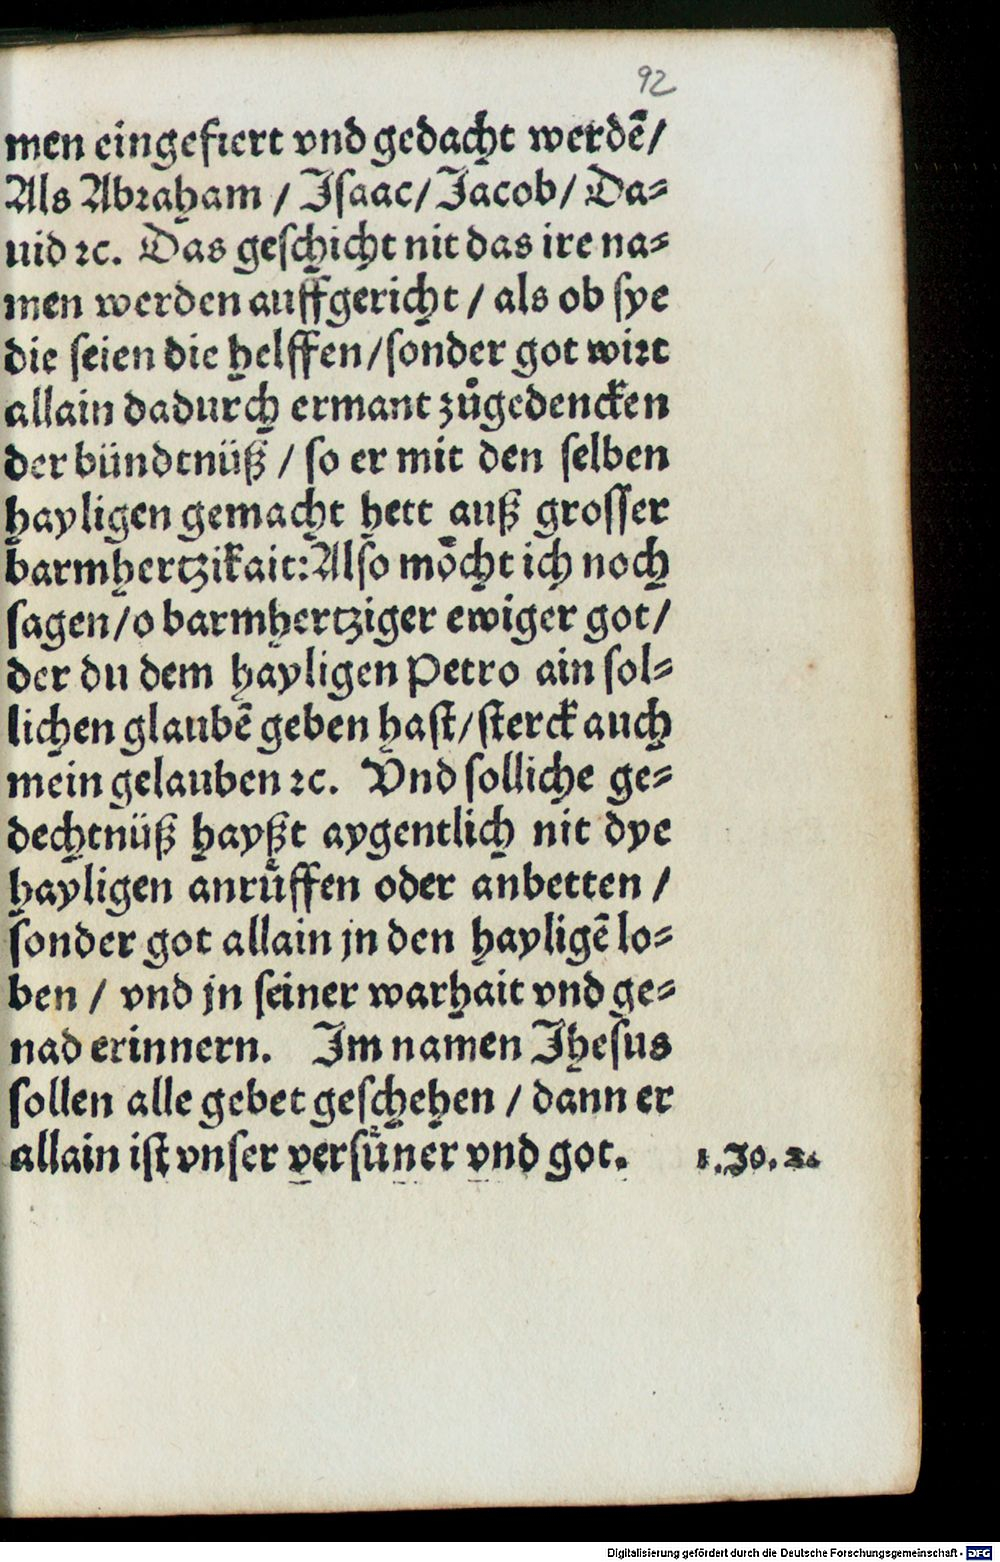 92
men eingefiert vnd gedacht werdē/
Als Abraham / Isaac/ Jacob/ Da⸗
uid ꝛc. Das geschicht nit das ire na⸗
men werden auffgericht / als ob sye
die seien die helffen/sonder got wirt
allain dadurch ermant zůgedencken
der bündtnüß / so er mit den selben
hayligen gemacht hett auß grosser
barmhertzikait: Also moͤcht ich noch
sagen/o barmhertziger ewiger got/
der du dem hayligen Petro ain sol⸗
lichen glaubē geben hast/sterck auch
mein gelauben ꝛc. Vnd solliche ge⸗
dechtnüß hayßt aygentlich nit dye
hayligen anruͤffen oder anbetten /
sonder got allain jn den hayligē lo⸗
ben / vnd jn seiner warhait vnd ge⸗
nad erinnern. Im namen Jhesus
sollen alle gebet geschehen / dann er
allain ist vnser versuͤner vnd got. 1. Jo. 2.
Digitalisierung gefördert durch die Deutsche Forschungsgemeinschaft - DFG